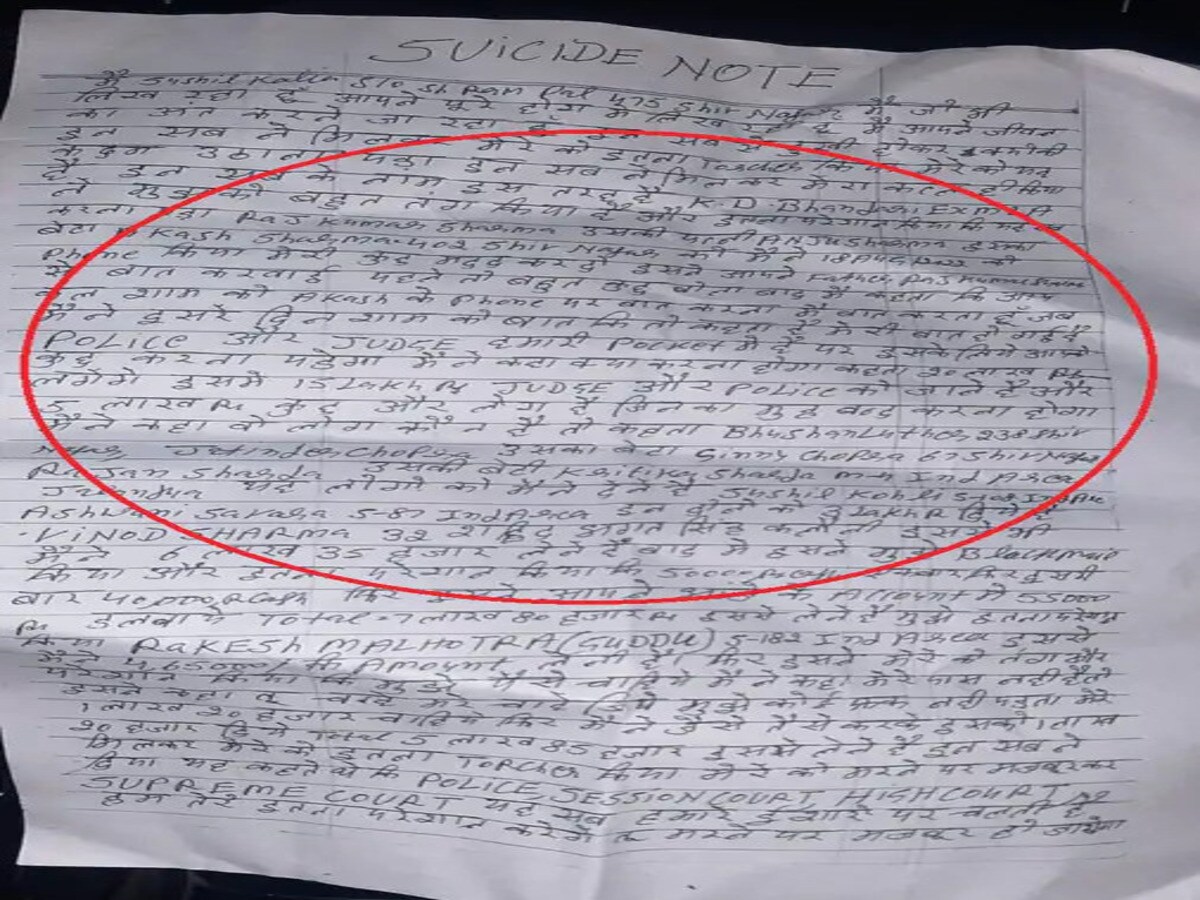 SUICIDE NOTE
मैं Sushil Kalia S/o Sh Ram Pal 475 Shiv Nagar में जो भी
लिख रहा हूँ आपने पूरे होश में लिख रहा हूँ मैं आपने जीवन
का अंत करने जा रहा हूँ इन सब से दुखी होकर क्योंकी
इन सब ने मिलकर मेरे को इतना Torcher किया मेरे को यह
कदम उठाना पड़ा इन सब ने मिलकर मेरा कत्ल ही किया
है इन सब के नाम इस तरह है K.D. Bhandari Ex
ने मुझको बहुत तंग किया है और इतना परेशान किया कि यह सब
करना पड़ा Raj Kumar Sharma उसकी पत्नी ANJU Sharma इसका
बेटा Akash Sharma 402 Shiv Nagar को मैंने 18 Aug 2022 को
Phone किया मेरी कुछ मदद कर दो इसने आपने Father Raj Kumar Sharma
से बात करवाई पहले तो बहुत कुछ बोला बाद में कहता कि आप
कल शाम को Akash के Phone पर बात करना मैं बात करता हूँ जब
मैंने दुसरे दिन शाम को बात कि तो कहता है मेरी बात हो गई है
POLICE और JUDGE हमारी Pocket में हैं पर इसके लिये आपको
कुछ करना पड़ेगा मैंने कहा क्या करना होगा कहता 20 लाख Rs
लगेगे इसमें 15 Lakh Rs JUDGE और POLICE को जाने हैं और
5 लाख Rs कुछ और लोग हैं जिनका मुह बन्द करना होगा
मैंने कहा वो लोग कौन हैं तो कहता Bhushan Luther 238 Shiv
Nagar Jatinder Chopra उसका बेटा Ginny Chopra 67 Shiv Nagar
Rajan Sharda उसकी बेटी Kritika Sharda Ind Area
Jalandhar यह लोगो को मैंने देने है Sushil Kohli
Ashwani 5-87 Ind Area इन दोनों को 3 Lakh R दिये हैं
VINOD SHARMA 32 शहिद भगत सिंह कलौनी इससे भी
मैंने 6 लाख 35 हजार लेने हैं बाद में इसने मुझे Blackmail
किया और इतना परेशान किया कि 50000 Rs Cash दुसरी
बार 40,000 R Cash फिर इसने आपने के Account में 55000
Rs डलवाये Total = 7 लाख 80 हजार Rs इससे लेने हैं मुझे इतना परेशान
किया RAKESH MALHOTRA (GUDDU) S-182 Ind Area इससे
मैंने 4,65000/- Rs Amount लेनी है। फिर इसने मेरे को तंग और
परेशान किया कि मुझे पैसे चाहिये मैंने कहा मेरे पास नहीं है तो
इसने कहा तू चाहे मर चाहे जिये मुझे कोई फ्रक नहीं पड़ता मेरे
1 लाख 20 हजार चाहिये फिर मैंने जैसे तैसे करके इसको 1 लाख
20 हजार दिये Total 5 लाख 85 हजार इससे लेने हैं इन सब ने
मिलकर मेरे को इतना TORCHER किया मेरे को मरने पर मजबूर कर
दिया यह कहते थे कि POLICE, SESSION COURT, HIGH COURT,
SUPREME COURT यह सब हमारे इशारे पर चलती है
हम तेरे इतना परेशान करेगें तू मरने पर मजबूर हो जायेगा